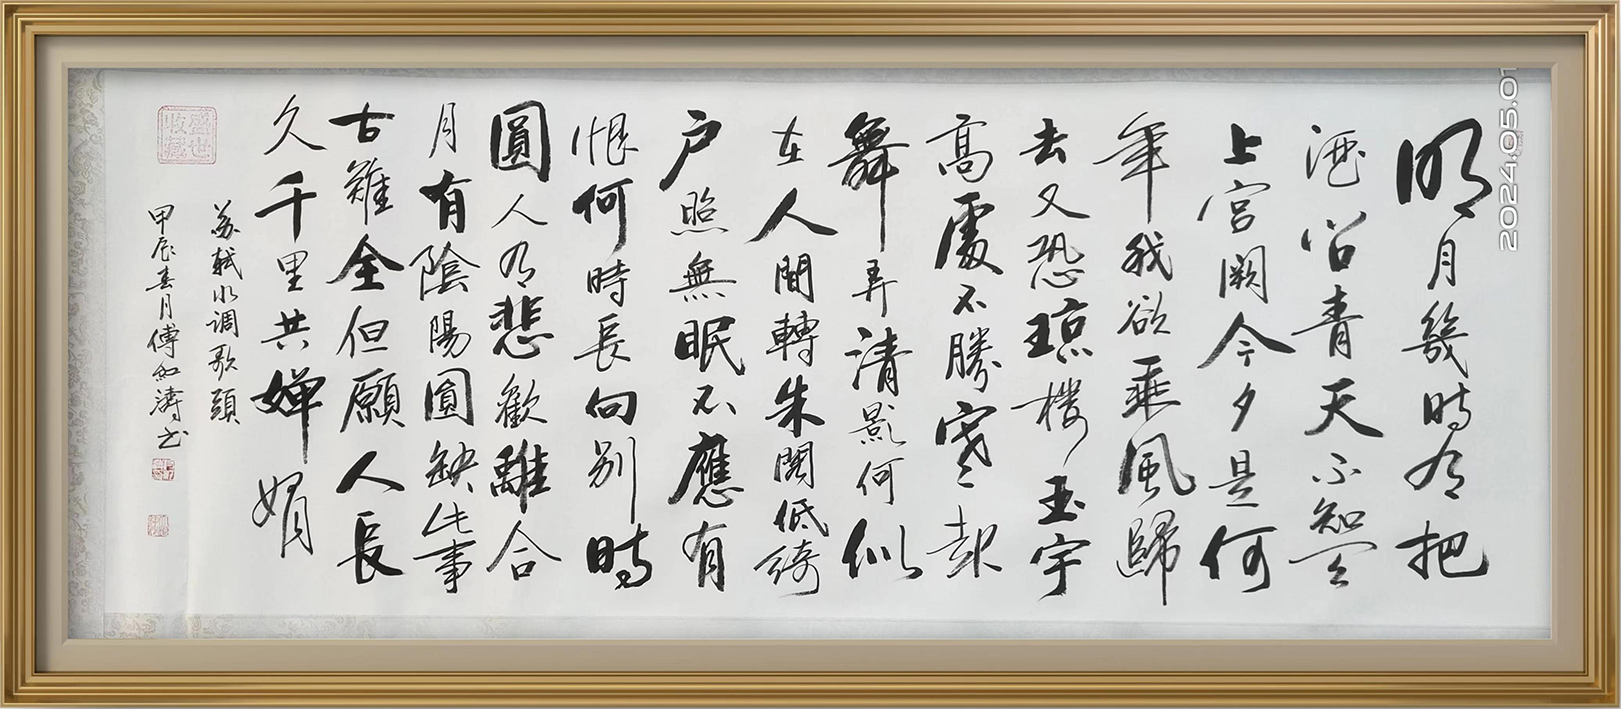 明月幾時有把
酒问青天不知天
上宮闕今夕是何
年我欲乘風歸
去又恐琼樓玉宇
高處不勝寒起
舞弄清影何似
在人間轉朱閣低綺
户照無眠不應有
恨何時長向別時
圓人有悲歡離合
月有陰陽圓缺此事
古難全但願人長
久千里共嬋娟
苏軾水调歌頭
甲辰春月傅红濤书
盛世收藏
2024.05.01